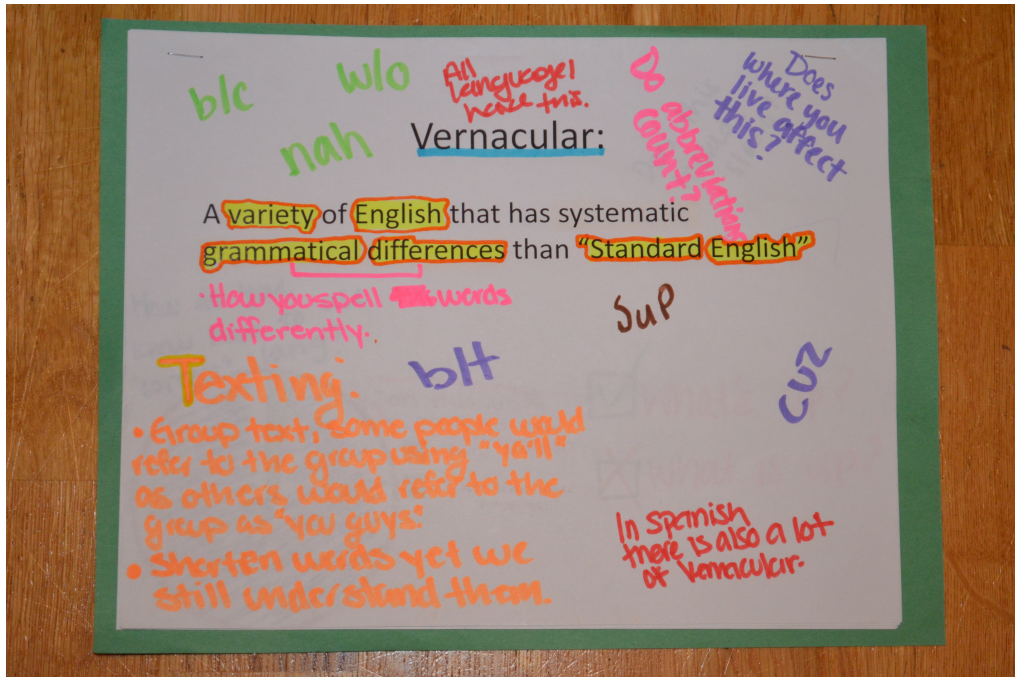 b/c
w/o
nah
All
languages
have this.
Do abbreviations
count?
Does
where you
live affect
this?
Vernacular:
A variety of English that has systematic
grammatical differences than “Standard English”
• How you spell words
differently.
Sup
blt
cuz
Texting:
• Group text, some people would
refer to the group using "ya'll"
as others would refer to the
group as "you guys".
• Shorten words yet we
still understand them.
In spanish
there is also a lot
of vernacular.